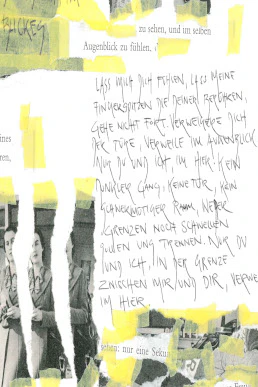 BLICKES
zu sehen, und im selben
Augenblick zu fühlen,
LASS MICH DICH FÜHLEN, LASS MEINE
FINGERSPITZEN DIE DEINEN BERÜHREN,
GEHE NICHT FORT, VERWEIGERE DICH
DER TÜRE, VERWEILE IM AUGENBLICK
NUR DU UND ICH, IM HIER. KEIN
DUNKLER GANG, KEINE TÜR, KEIN
SCHWERMÜTIGER RAUM, WEDER
GRENZEN NOCH SCHWELLEN
SOLLEN UNS TRENNEN. NUR DU
UND ICH, IN DER GRENZE
ZWISCHEN MIR UND DIR, VERWE
IM HIER.
ines
ren,
sehen: nur eine Seku